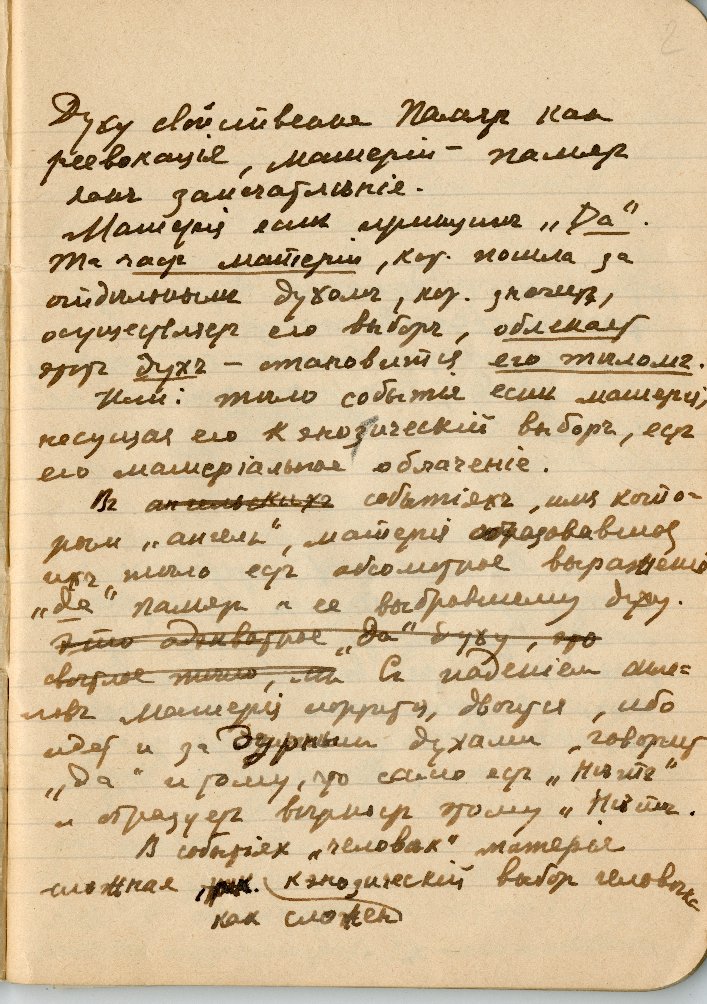 2
Духу свойственна память как
реевокація, матеріи – память
какъ запечатлѣніе.
Матерія если принципъ „Да“.
Та часть матеріи, кот. пошла за
отдѣльнымъ духомъ, кот. значитъ,
осуществляетъ его выборъ, облекаетъ
этотъ духъ – становится его тѣломъ.
Или: тѣло событія если матерія,
несущая его кэнозическій выборъ, есть
его матеріальное облаченіе.
Въ ангельскихъ событіяхъ, имя кото-
рыхъ „ангелъ“, матерія образовавшая
ихъ тѣло есть абсолютное выраженіе
„да“ память и ее выбравшему духу.
Это адэкватное „да“ духу, это
свѣтлое тѣло, Съ паденіем анге-
ловъ матерія портится, двоится, ибо
идетъ и за дурными духами, говоритъ
„да“ и тому, что само есть „Нѣтъ“
и образуетъ вѣрность этому „Нѣтъ.
Въ событіях „человѣк“ матерія
сложная кэнозическій выбор человѣка
как сложен